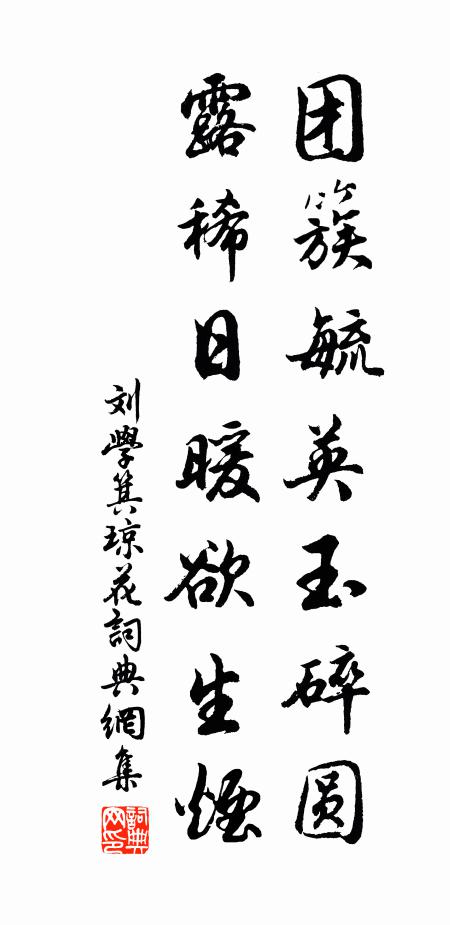 团簇毓英玉碎圆
露稀日暖欲生煙
刘學箕琼花詞典網集
詞典网印